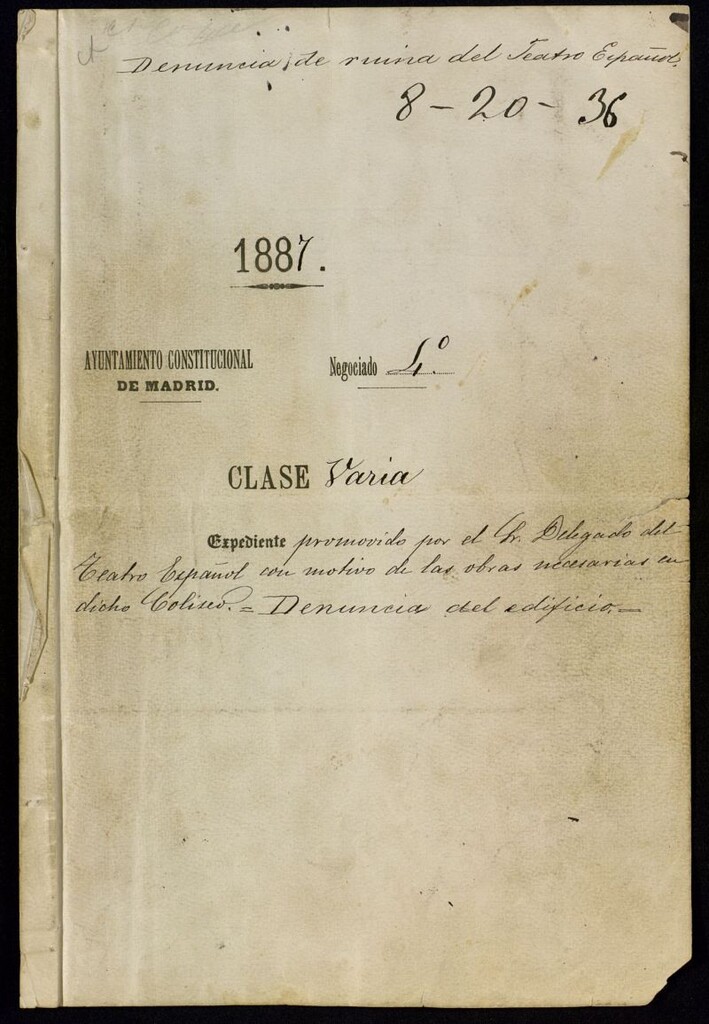 Denuncia de ruina del Teatro Español.
8 - 20 - 36
1887.
AYUNTAMIENTO CONSTITUCIONAL
DE MADRID.
Negociado 4º
CLASE Varia
Expediente promovido por el Sr. Delegado del
Teatro Español con motivo de las obras necesarias en
dicho Coliseo. = Denuncia del edificio. =